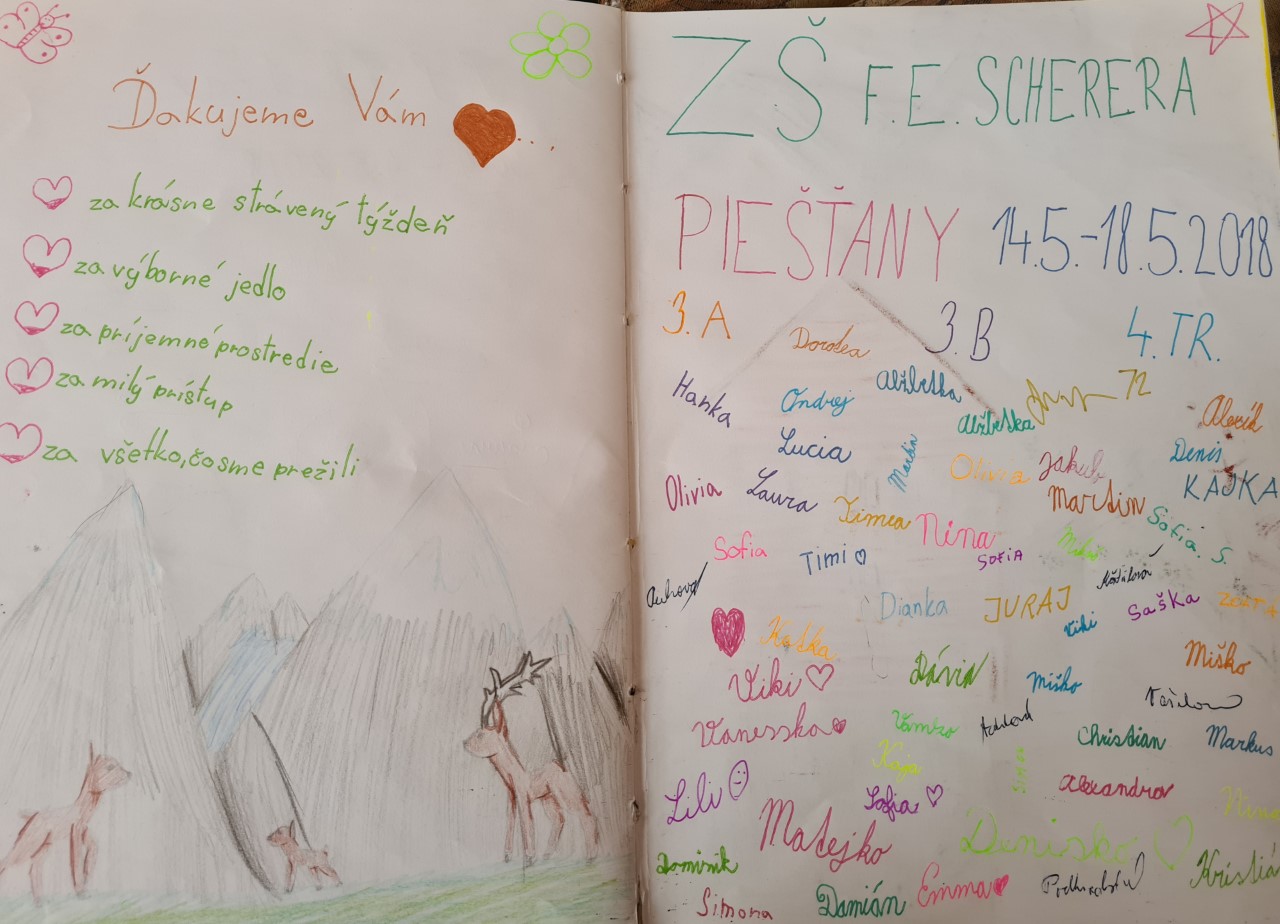 Ďakujeme Vám ...
za krásne strávený týždeň
za výborné jedlo
za príjemné prostredie
za milý prístup
za všetko, čo sme prežili
ZŠ F. E. SCHERERA
PIEŠŤANY 14.5.-18.5.2018
3. A 3. B 4. TR.
Dorotea
Hanka Ondrej Alžbetka 72
Alžbetka Alexík
Lucia Martin Olivia Jakub Denis
Olivia Laura Timea Nina Martin KAJKA
Sofia. S.
Sofia Timi SOFIA Miško
Dianka JURAJ Viki Saška
Katka Dávid Miško Miško
Viki
Vanesska Christian Markus
Kaja
Lili Sofia Alexandra Nina
Matejko Deniško
Dominik Kristiá
Simona Damián Emma